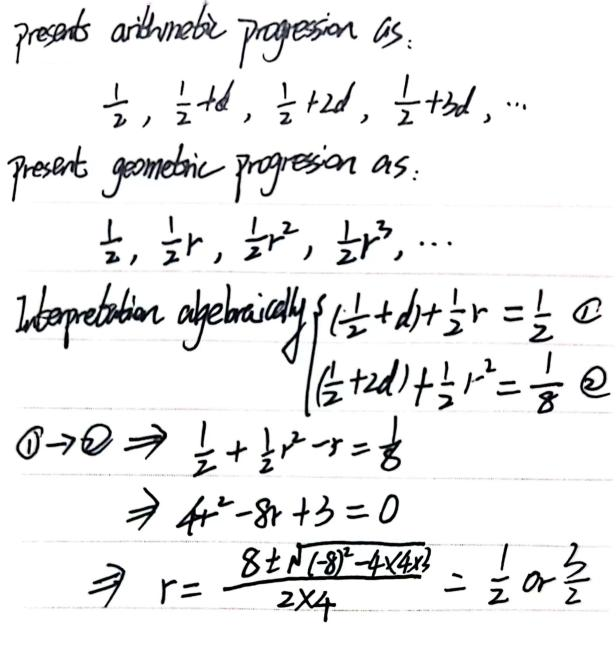 presents arithmetic progression as:
1/2, 1/2+d, 1/2+2d, 1/2+3d, ...
present geometric progression as:
1/2, 1/2r, 1/2r², 1/2r³, ...
Interpretation algebraically { (1/2+d)+1/2r = 1/2 ①
(1/2+2d)+1/2r² = 1/8 ②
①→② ⇒ 1/2 + 1/2r² - r = 1/8
⇒ 4r² - 8r + 3 = 0
⇒ r = (8 ± √((-8)² - 4×4×3))/(2×4) = 1/2 or 3/2